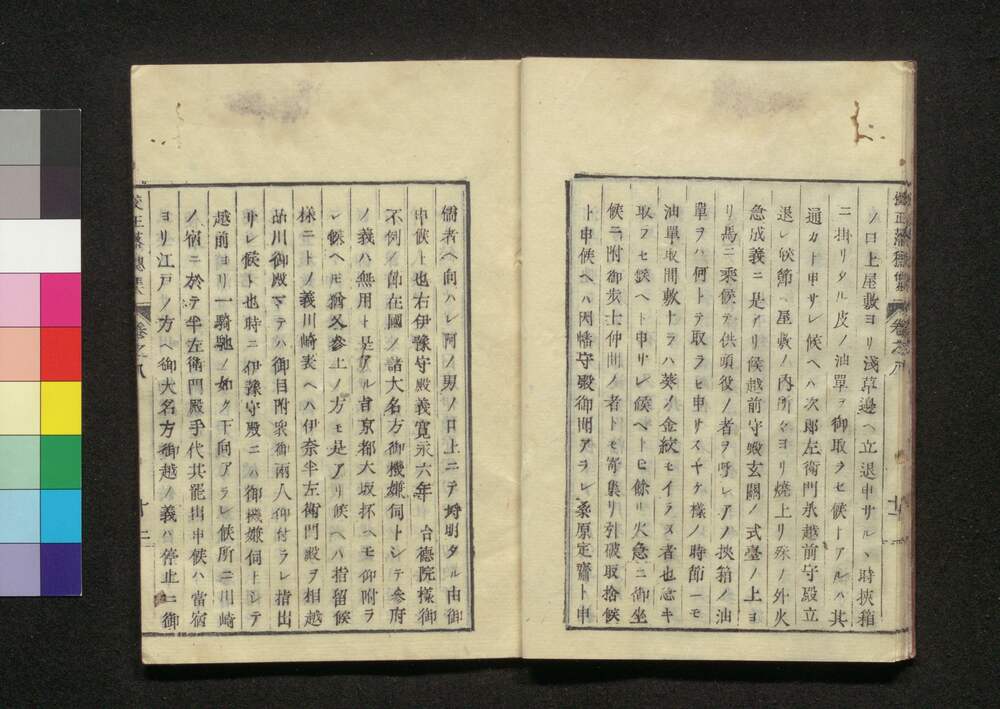 ノ口上屋敷ヨリ淺草邊ヘ立退申サルヽ時挾箱
ニ掛リタル皮ノ油單ヲ御取ラセ候トアルハ其
通カト申サレ候ヘハ次郎左衛門承越前守殿立
退レ候節ハ屋敷ノ内所々ヨリ燒上リ殊ノ外火
急成義ニ是アリ候越前守殿玄關ノ式臺ノ上ヨ
リ馬ニ乘候テ供頭役ノ者ヲ呼レアノ挾箱ノ油
單ヲハ何トテ取ラヒ申サスヤケ樣ノ時節一モ
油單取間敷トラハ葵ノ金紋モイラヌ者也急キ
取ラセ候ヘト申サレ候ヘトヒ餘ル火急ニ御坐
候ニ附御歩士仲間ノ者トモ寄集リ引破取捨候
ト申候ヘハ因幡守殿御聞アラレ桑原定齋ト申
校正落穗集 卷之八 十一
儒者ヘ向ハレ阿ノ男ノ口上ニテ埒明タル由御
申候ト也右伊豫守殿義寛永六年 台德院樣御
不例ノ節在國ノ諸大名方御機嫌伺トシテ參府
ノ義ハ無用ト是アル旨京都大坂抔ヘモ仰附ラ
レ候ヘモ猶又參上ノ方モ是アリ候ヘハ指留候
樣ニトノ義川崎表ヘハ伊奈半左衛門殿ヲ相越
品川御殿マテハ御目附衆御兩人仰付ラレ指出
サレ候ト也時ニ伊豫守殿ニハ御機嫌伺トシテ
越前ヨリ一騎馳ノ如ク下向アラレ候所ニ川崎
ノ宿ニ於テ半左衛門殿手代共罷出申候ハ當宿
ヨリ江戸ノ方ヘ御大名方御越ノ義ハ停止ニ御
校正落穗集 卷之八 十二